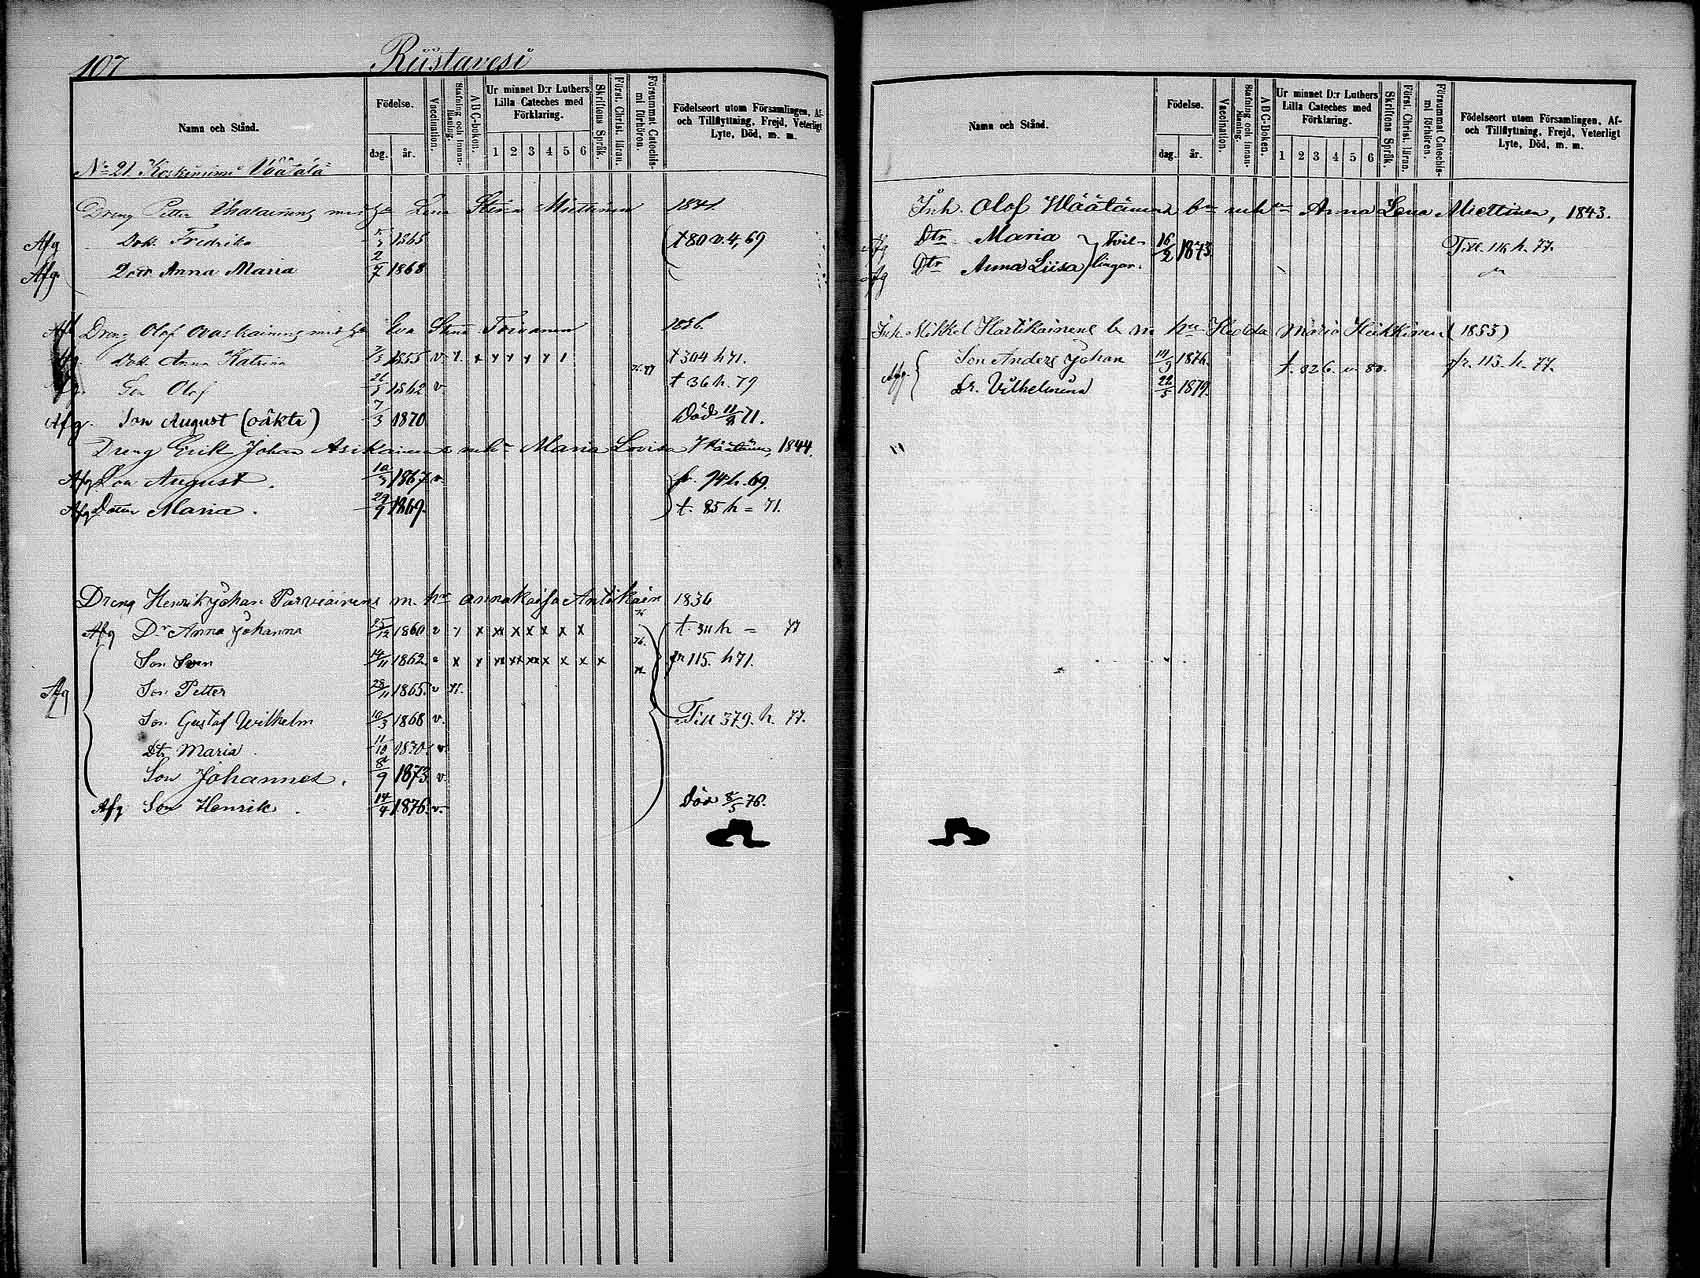 107 Riistavesi
Namn och Stånd.
Födelse.
dag. år.
Vaccination.
Stafning och Innanläsning.
A B C-boken.
Ur minnet D:r Luthers Lilla Cateches med Förklaring.
1 2 3 4 5 6
Skriftens Språk.
Först. Christ. läran.
Försummat Catechismi förhören.
Födelseort utom Församlingen, Af- och Tillflyttning, Frejd, Veterligt Lyte, Död, m. m.
No 21
Dreng Petter med Lena Stina Miettinen 1841.
Afg Dott. Fredrika 1865 t 80 v. 4, 69
Afg. Dottr Anna Maria 2/7 1868
Dreng Olof med Eva Stina Toivanen 1826.
Dott. Anna Katrina 1855 v. t 304 h 71.
Son Olof 1862 v t 36 h. 79
Afg. Son August (oäkta) 7/3 1870 Död 11/8 71.
Dreng Erik Johan Asikainen Maria Lovisa 1844.
Afg Son August. 10/3 1867 v. fr. 94 h. 69.
Afg Dotter Maria. 29/9 1869. t. 85 h = 71.
Dreng Henrik Johan Parviainens m. hu Anna Kaisa Antikain 1836
Afg Dr Anna Johanna 25/12 1860 v t. 311 h = 77
Son Sven 14/11 1862 fr 115. h 71.
Afg Son Petter 28/11 1865. v
Son Gustaf Wilhelm 10/3 1868 v. Till 379. h. 77.
Dtr Maria 11/10 1870 v
Son Johannes. 8/9 1873 v.
Afg Son Henrik. 14/4 1876. v. Död 8/5 76.
Namn och Stånd.
Födelse.
dag. år.
Vaccination.
Stafning och Innanläsning.
A B C-Boken.
Ur minnet D:r Luthers Lilla Cateches med Förklaring.
1 2 3 4 5 6
Skriftens Språk.
Först. Christ. läran.
Försummat Catechismi förhören.
Födelseort utom Församlingen, Af- och Tillflyttning, Frejd, Veterligt Lyte, Död, m. m.
Inh. Olof Väätäinens Anna Lena Miettinen, 1843.
Afg Dtr Maria Tvil- 16/2 1873 Till 116 h. 77.
Afg Dtr Anna Liisa lingar.
Inh. Mikkel Hartikainens hu Hedda Maria Heikkinen (1855)
Afg. Son Anders Johan 1876. t. 326. v. 80. fr. 113. h. 77.
Dr. Vilhelmina 22/5 1879.